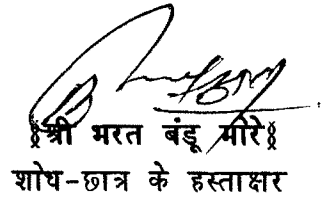 (श्री भरत बंडू मोरे)
शोध-छात्र के हस्ताक्षर